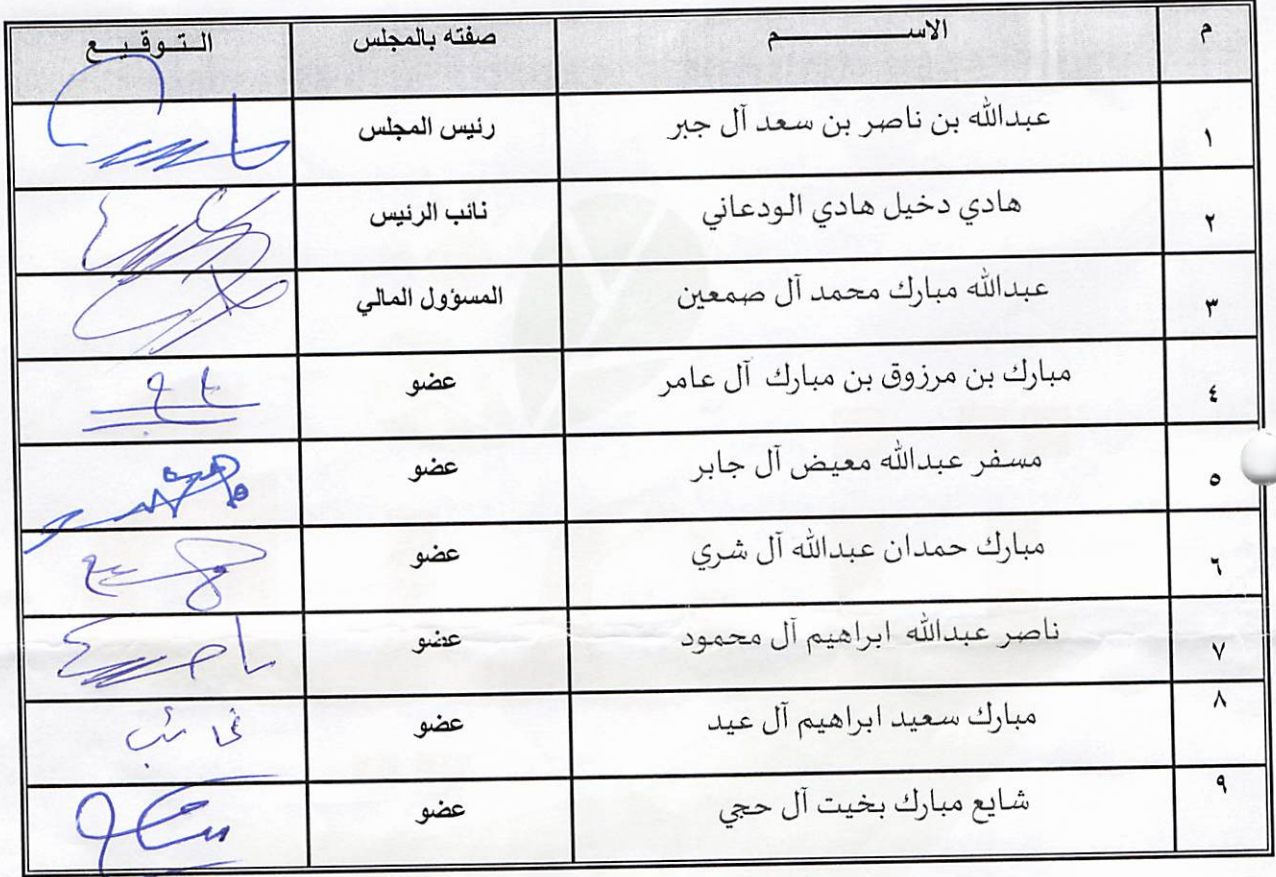 م الاســـــــــــم صفته بالمجلس الـتـوقـيـع
١ عبدالله بن ناصر بن سعد آل جبر رئيس المجلس
٢ هادي دخيل هادي الودعاني نائب الرئيس
٣ عبدالله مبارك محمد آل صمعين المسؤول المالي
٤ مبارك بن مرزوق بن مبارك آل عامر عضو
٥ مسفر عبدالله معيض آل جابر عضو
٦ مبارك حمدان عبدالله آل شري عضو
٧ ناصر عبدالله ابراهيم آل محمود عضو
٨ مبارك سعيد ابراهيم آل عيد عضو غائب
٩ شايع مبارك بخيت آل حجي عضو